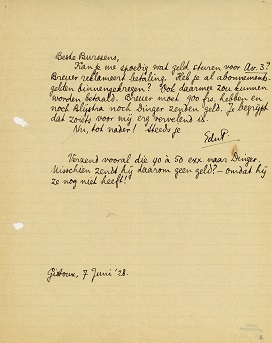 Beste Burssens,
Kan je me spoedig wat geld sturen voor Av. 3?
Breuer reklameert betaling. Heb je al abonnements-
gelden binnengekregen? Ook daarmee zou kunnen
worden betaald. Breuer moet 900 frs. hebben en
noch Blijstra noch Dinger zenden geld. Je begrijpt
dat zoiets voor mij erg vervelend is.
Nu, tot nader! Steeds je
EduP.
Verzend vooral die 40 à 50 exx naar Dinger.
Misschien zendt hij daarom geen geld? – omdat hij
ze nog niet heeft!
7 Juni '28.